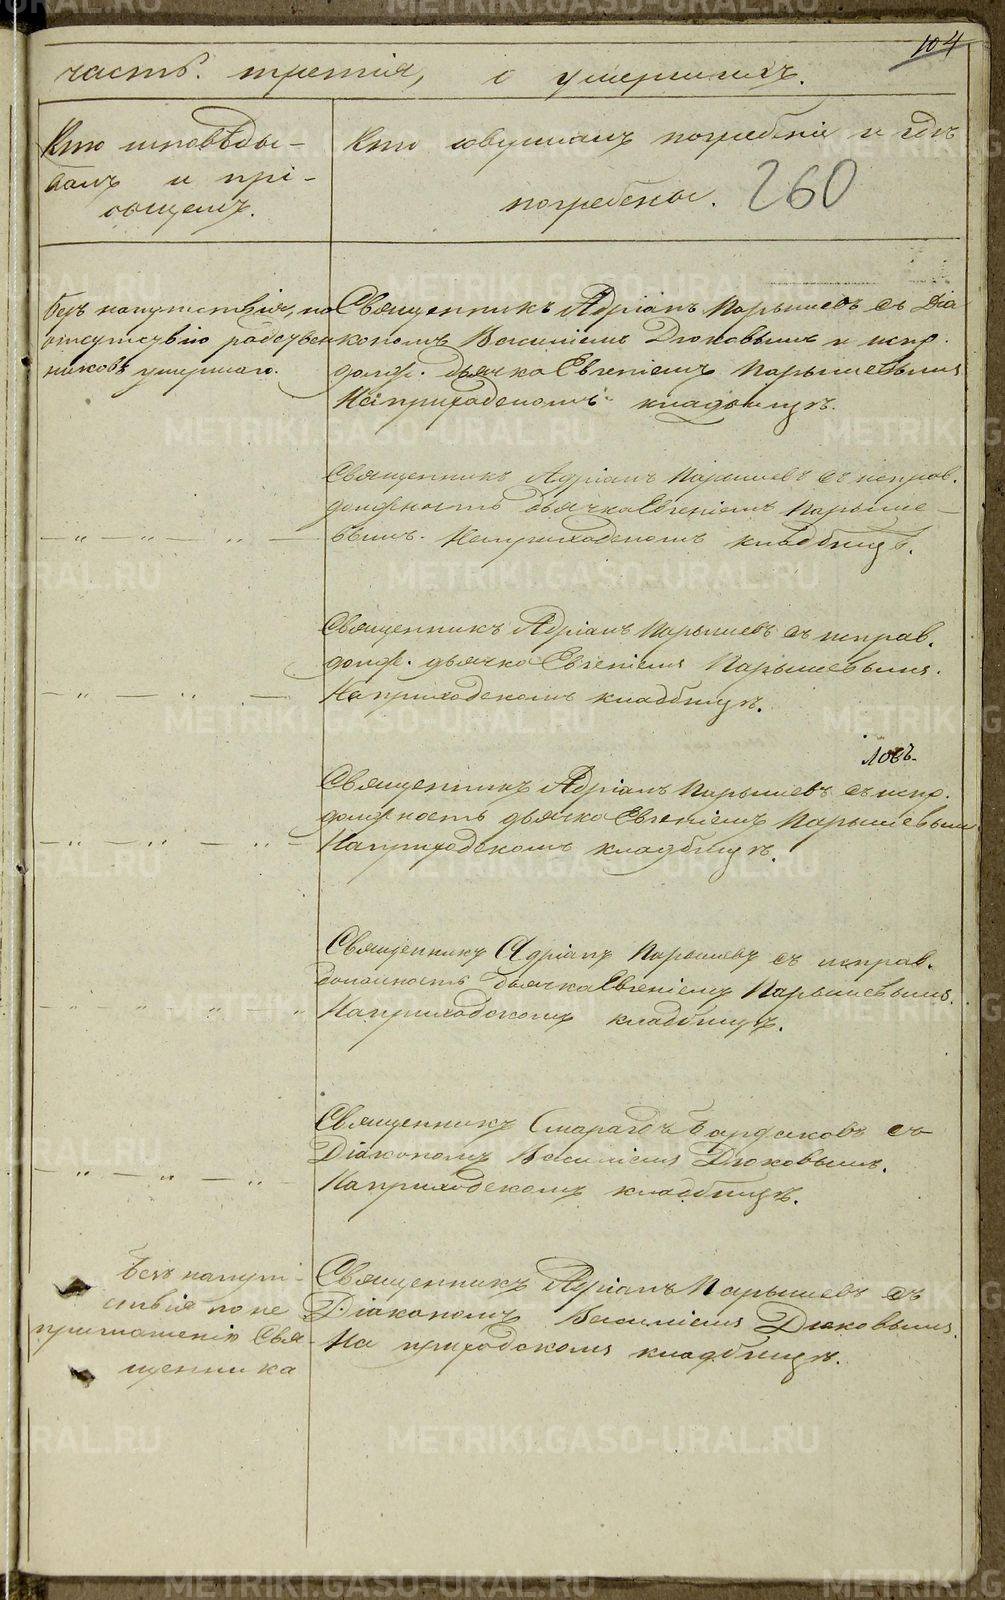 104
часть. третія, о умершихъ.
Кто исповѣды-
валъ и прі-
общалъ.
Кто совершалъ погребеніе и гдѣ
погребены. 260
безъ напутствія, по
отсутствію родствен
никовъ умершаго.
Священникъ Адріанъ Парышевъ съ Діа
кономъ Василіемъ Дюковымъ и испр.
долж. дьячка Евгеніемъ Парышевымъ
На приходскомъ кладбищѣ.
Священникъ Адріанъ Парышевъ съ исправ.
должность дьячка Евгеніемъ Парыше-
— „ — „ — „ —
вымъ. На приходскомъ кладбищѣ.
Священникъ Адріанъ Парышевъ съ исправ.
долж. дьячка Евгеніемъ Парышевымъ.
— „ — „ —
На приходскомъ кладбищѣ.
Священникъ Адріанъ Парышевъ съ испр.
должность дьячка Евгеніемъ Парышевым
— „ — „ — „ —
На приходскомъ кладбищѣ.
Священникъ Адріанъ Парышевъ съ исправ.
должность дьячка Евгеніемъ Парышевымъ.
— „ — „ — „
На приходскомъ кладбищѣ.
Священникъ Смарагдъ съ
Діакономъ Василіемъ Дюковымъ.
— „ — „ — „ —
На приходскомъ кладбищѣ.
безъ напут-
ствія по не
приглашенію Свя-
щенника
Священникъ Адріанъ Парышевъ съ
Діакономъ Василіемъ Дюковымъ.
На приходскомъ кладбищѣ.
METRIKI.GASO-URAL.RU